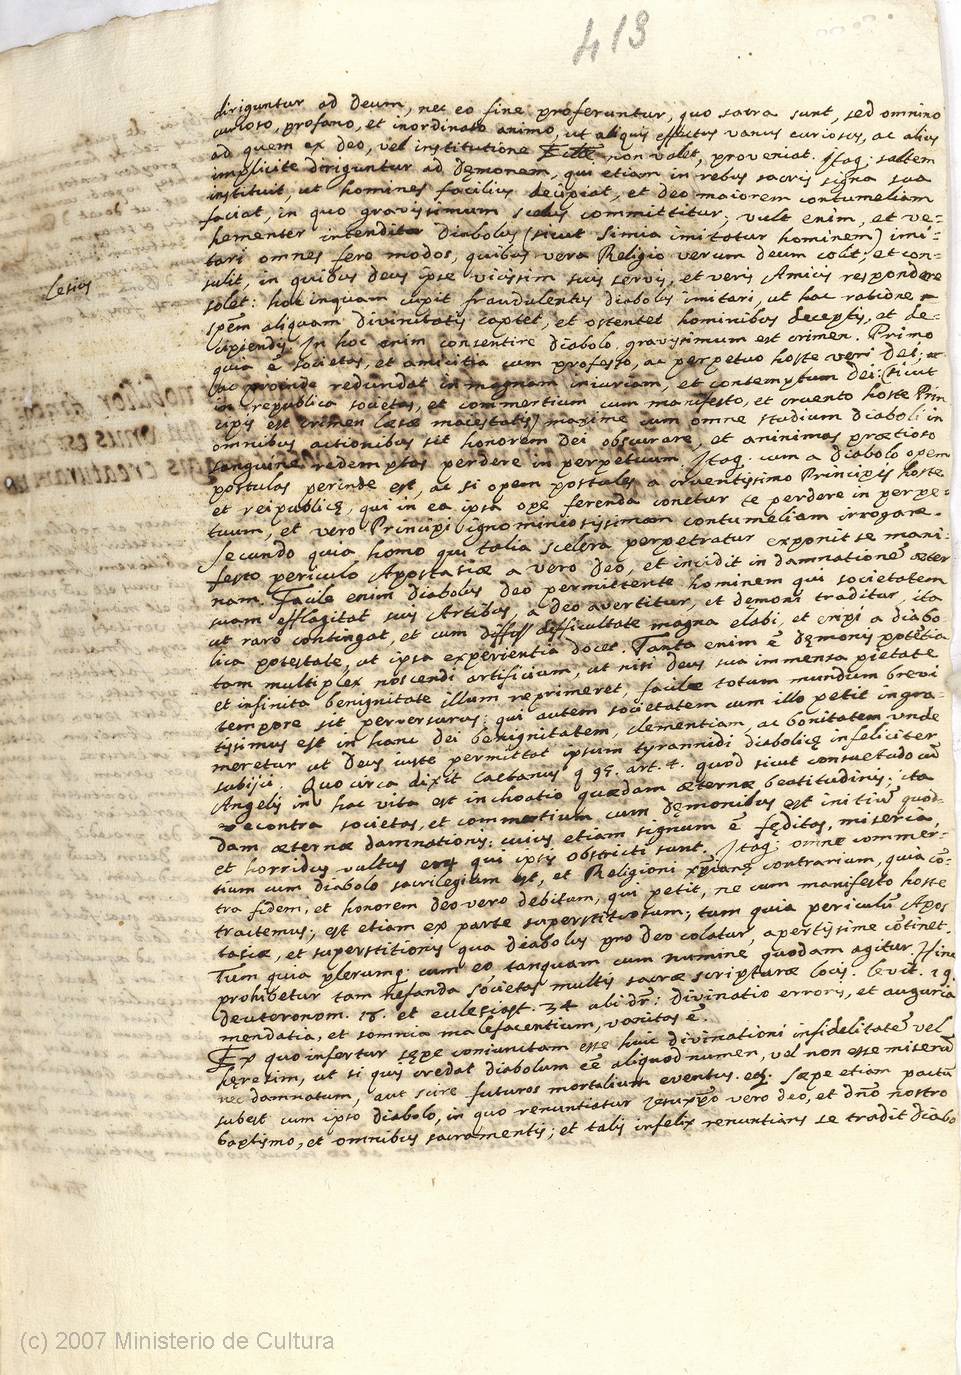 413
diriguntur ad Deum, nec eo fine proferuntur, quo sacra sunt, sed omnino
curioso, profano, et inordinato animo, ut aliquis effectus vanus curiosus, ac alius
ad quem ex Deo, vel institutione non valet, proveniat. Itaq; saltem
implicite diriguntur ad Dęmonem, qui etiam in rebus sacris signa sua
instituit, ut homines facilius decipiat, et Deo maiorem contumeliam
faciat, in quo gravissimum scelus committitur; vult enim, et ve-
hementer intendit Diabolus (sicut simia imitatur hominem) imi-
tari omnes fere modos, quibus vera Religio verum Deum colit; et con-
Lesius
sulit, in quibus Deus ipse vicissim suis servis, et veris Amicis respondere
solet: hoc inquam cupit fraudulentus diabolus imitari, ut hac ratione
spem aliquam divinitatis captet, et ostentet hominibus deceptis, et de-
cipiendis. In hoc enim consentire diabolo, gravissimum est crimen. Primo
quia ē societas, et amicitia cum professo, ac perpetuo hoste veri Dei;
ac proinde redundat in magnam iniuriam, et contemptum Dei: (sicut
in republica societas, et commertium cum manifesto, et cruento hoste Prin
cipis est crimen læsæ maiestatis) maxime cum omne studium diaboli in
omnibus actionibus sit honorem Dei obscurare, et animas prætioso
sanguine redemptas perdere in perpetuum. Itaq; cum a diabolo opem
postulas perinde est, ac si opem postules a cruentissimo Principis hoste
et reipublicę, qui in ea ipsa ope ferenda conetur te perdere in perpe-
tuum, et vero Principi ignominiosissimam contumeliam irrogare.
Secundo quia homo qui talia scelera perpetratur exponit se mani-
festo periculo Apostasiæ a vero Deo, et incidit in damnationē æter
nam. Facile enim diabolus Deo permittente hominem qui societatem
suam efflagitat suis Artibus, a Deo avertitur, et demoni traditur, ita
ut raro contingat, et cum difficultate magna elabi, et eripi a diabo
lica potestate, ut ipsa experientia docet. Tanta enim ē dęmonis potētia
tam multiplex noscendi artificium, ut nisi Deus sua immensa pietate
et infinita benignitate illum reprimeret, facile totum mundum brevi
tempore sit perversurus; qui autem societatem cum illo petit ingra-
tissimus est in hanc Dei benignitatem, clementiam, ac bonitatem unde
meretur ut Deus iuste permittat ipsum tyrannidi diabolicę infeliciter
subiici. Quo circa dixit Caetanus q 95. art. 4. quod sicut consuetudo cū
Angelis in hac vita est inchoatio quædam æternæ beatitudinis; ita
e contra societas, et commertium cum dęmonibus est initiū quod-
dam æternæ damnationis; cuius etiam signum ē fęditas, miseria,
et horridus vultus qui ipsis obstricti sunt. Itaq; omne commer-
tium cum diabolo sacrilegium est, et Religioni xp̄ianę contrarium, quia cō-
tra fidem, et honorem Deo vero debitum, qui petit, ne cum manifesto hoste
tractemus; est etiam ex parte superstitiosum; tum quia periculū Apos
tasiæ, et superstitionis qua diabolus pro Deo colatur, apertissime cōtinet.
Tum quia plerumq; cum eo tanquam cum numine quodam agitur. Hinc
prohibetur tam nefanda societas multis sacræ scripturæ locis. levit. 19.
deuteronom. 18. et eclesiast. 34 ubi dr̄: Divinatio erroris, et auguria
mendatia, et somnia malefacentium, vanitas ē.
Ex quo infertur sępe coniunctam esse huic divinationi infidelitatē vel
hęresim, ut si quis credat diabolum eē aliquod numen, vel non esse miserū
nec damnatum, aut scire futuros mortalium eventus. Sæpe etiam pactū
subest cum ipso diabolo, in quo renuntiatur vero Deo, et dño nostro
baptismo, et omnibus sacramentis; et talis infelix renuntians se tradit diabo
(c) 2007 Ministerio de Cultura